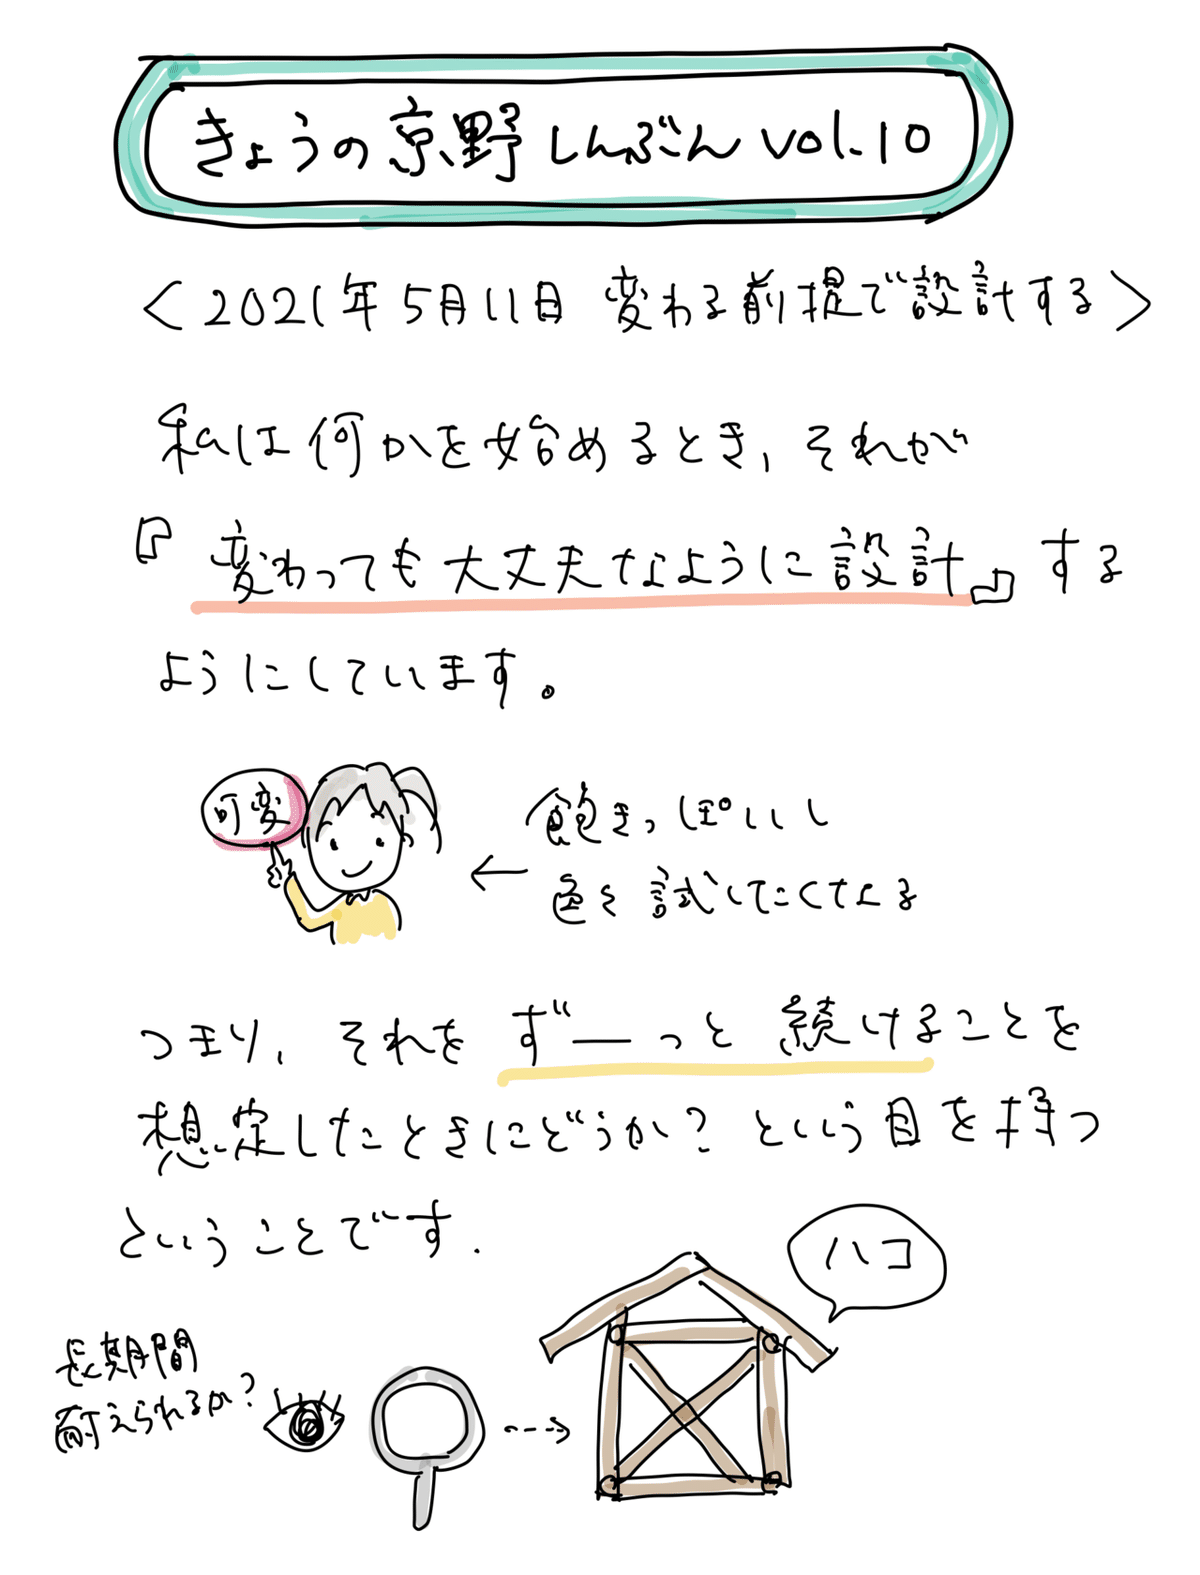 きょうの京野しんぶん vol.10
<2021年5月11日 変わる前提で設計する>
私は何かを始めるとき、それが
『変わっても大丈夫なように設計』する
ようにしています。
可変
← 飽きっぽいし
色々試したくなる
つまり、それをずーっと続けることを
想定したときにどうか?という目を持つ
ということです.
ハコ
長期間
耐えられるか?